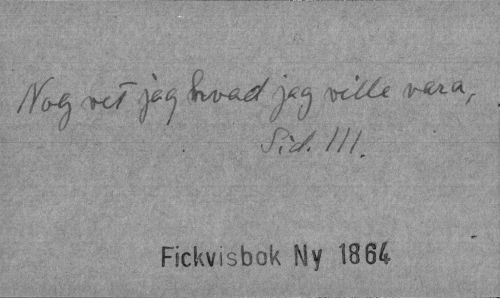 Nog vet jag hvad jag ville vara,
Sid. 111.
Fickvisbok Ny 1864